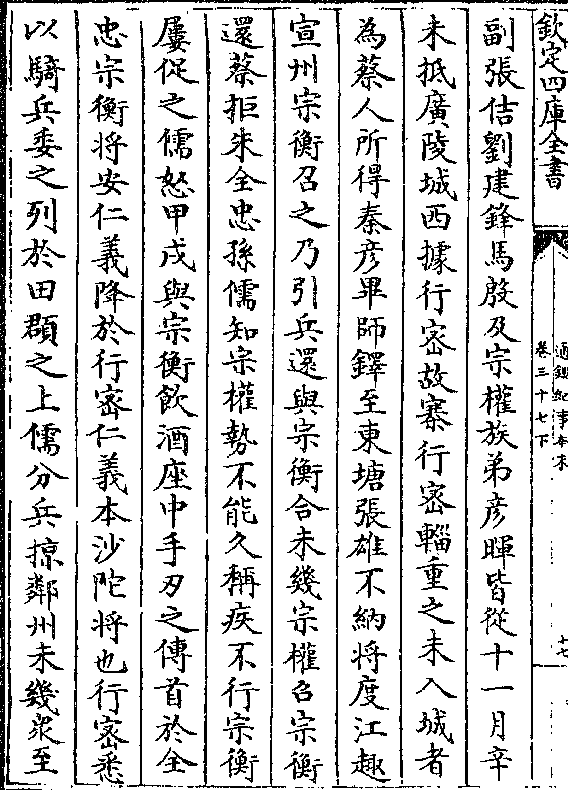 欽定四庫全書
通鑑紀事本末
卷三十七下
十七
副張佶劉建鋒馬殷及宗權族弟彦暉皆從十一月辛
未抵廣陵城西據行密故寨行密輜重之未入城者
為蔡人所得秦彦畢師鐸至東塘張雄不納将度江趣
宣州宗衡召之乃引兵還與宗衡合未幾宗權召宗衡
還蔡拒朱全忠孫儒知宗權勢不能久稱疾不行宗衡
屢促之儒怒甲戌與宗衡飲酒座中手刃之傳首於全
忠宗衡将安仁義降於行密仁義本沙陀将也行密悉
以騎兵委之列於田頵之上儒分兵掠鄰州未幾衆至